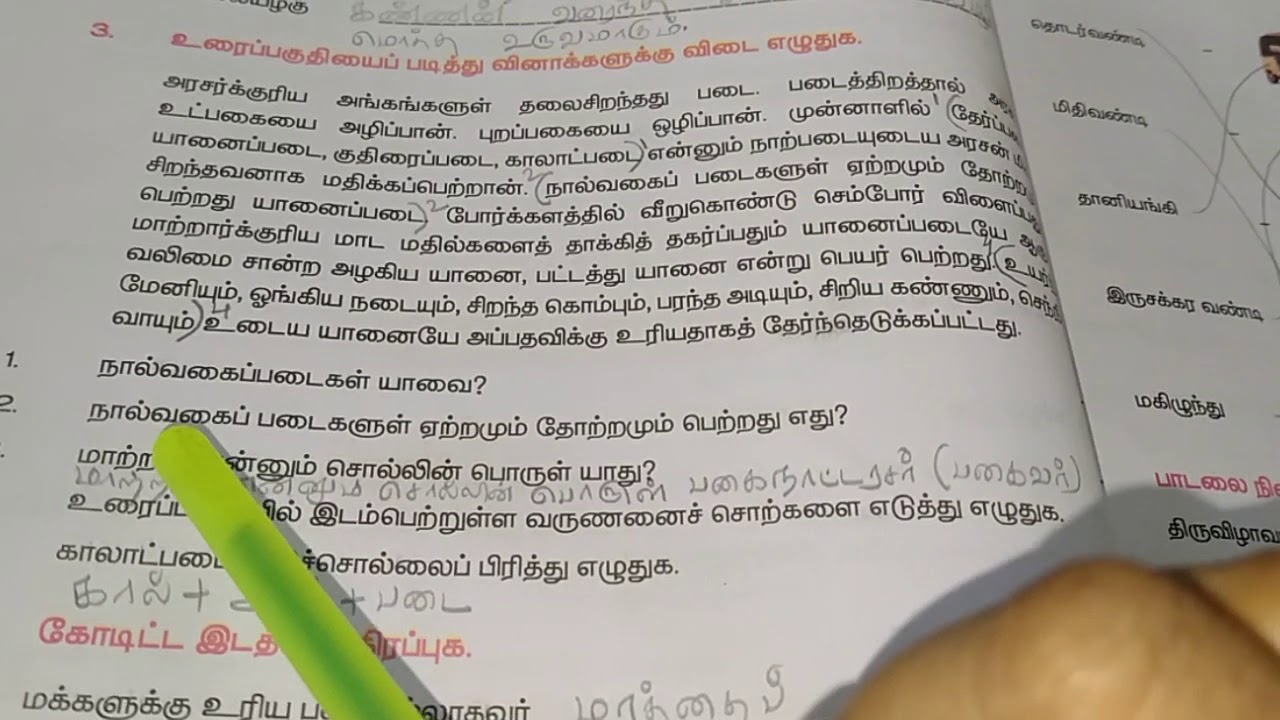 கண்ணன் வரைந்த
மொத்த உருவமாகும்.
3. உரைப்பகுதியைப் படித்து வினாக்களுக்கு விடை எழுதுக.
அரசர்க்குரிய அங்கங்களுள் தலைசிறந்தது படை. படைத்திறத்தால்
உட்பகையை அழிப்பான். புறப்பகையை ஒழிப்பான். முன்னாளில் (தேர்ப்ப
யானைப்படை, குதிரைப்படை, காலாட்படை) என்னும் நாற்படையுடைய அரசன்
சிறந்தவனாக மதிக்கப்பெற்றான். (நால்வகைப் படைகளுள் ஏற்றமும் தோற்ற
பெற்றது யானைப்படை) போர்க்களத்தில் வீறுகொண்டு செம்போர் விளைப்ப
மாற்றார்க்குரிய மாட மதில்களைத் தாக்கித் தகர்ப்பதும் யானைப்படையே
வலிமை சான்ற அழகிய யானை, பட்டத்து யானை என்று பெயர் பெற்றது. (உயர்
மேனியும், ஓங்கிய நடையும், சிறந்த கொம்பும், பரந்த அடியும், சிறிய கண்ணும், செந்நி
வாயும்) உடைய யானையே அப்பதவிக்கு உரியதாகத் தேர்ந்தெடுக்கப்பட்டது.
1. நால்வகைப்படைகள் யாவை?
2. நால்வகைப் படைகளுள் ஏற்றமும் தோற்றமும் பெற்றது எது?
மாற்ற ன்னும் சொல்லின் பொருள் யாது?
சொல்லின் பொருள் பகைநாட்டரசர் (பகைவர்)
உரைப்ப ல் இடம்பெற்றுள்ள வருணனைச் சொற்களை எடுத்து எழுதுக.
காலாட்படை ச்சொல்லைப் பிரித்து எழுதுக.
கால் + + படை
கோடிட்ட இடத நிரப்புக.
மக்களுக்கு உரிய
தொடர்வண்டி
மிதிவண்டி
தானியங்கி
இருசக்கர வண்டி
மகிழுந்து
பாடலை நி
திருவிழாவ